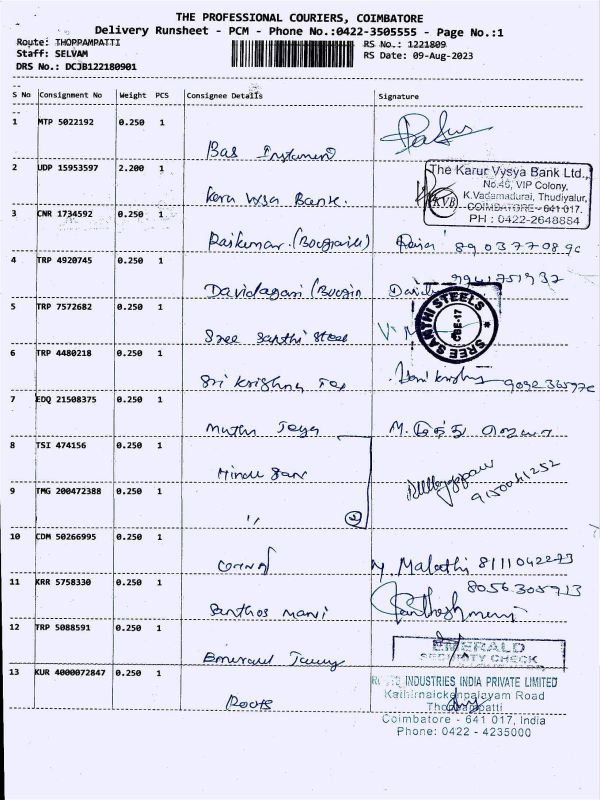 THE PROFESSIONAL COURIERS, COIMBATORE
Delivery Runsheet - PCM - Phone No.:0422-3505555 - Page No.:1
Route: THOPPAMPATTI
RS No.: 1221809
Staff: SELVAM
RS Date: 09-Aug-2023
DRS No.: DCJB122180901
S No Consignment No Weight PCS Consignee Details Signature
1 MTP 5022192 0.250 1
Bas Instument
2 UDP 15953597 2.200 1
The Karur Vysya Bank Ltd.,
No.46, VIP Colony,
K.Vadamadurai, Thudiyalur,
COIMBATORE - 641 017.
PH : 0422-2648884
KVB
Bank.
3 CNR 1734592 0.250 1
Raikumar.
4 TRP 4920745 0.250 1
5 TRP 7572682 0.250 1
Sree Santhi Steel
SREE SANTHI STEELS
CBE-17
6 TRP 4480218 0.250 1
Sri Krishna Tex
7 EDQ 21508375 0.250 1
Muthu Jeya
8 TSI 474156 0.250 1
9 TMG 200472388 0.250 1
〃
9150041252
10 CDM 50266995 0.250 1
M. Malathi 8111042273
11 KRR 5758330 0.250 1
8056305713
Santhos mani
12 TRP 5088591 0.250 1
Emerald
EMERALD
SECURITY CHECK
13 KUR 4000072847 0.250 1
Roots
INDUSTRIES INDIA PRIVATE LIMITED
Kathirnaickenpalayam Road
Thoppampatti
Coimbatore - 641 017, India
Phone: 0422 - 4235000